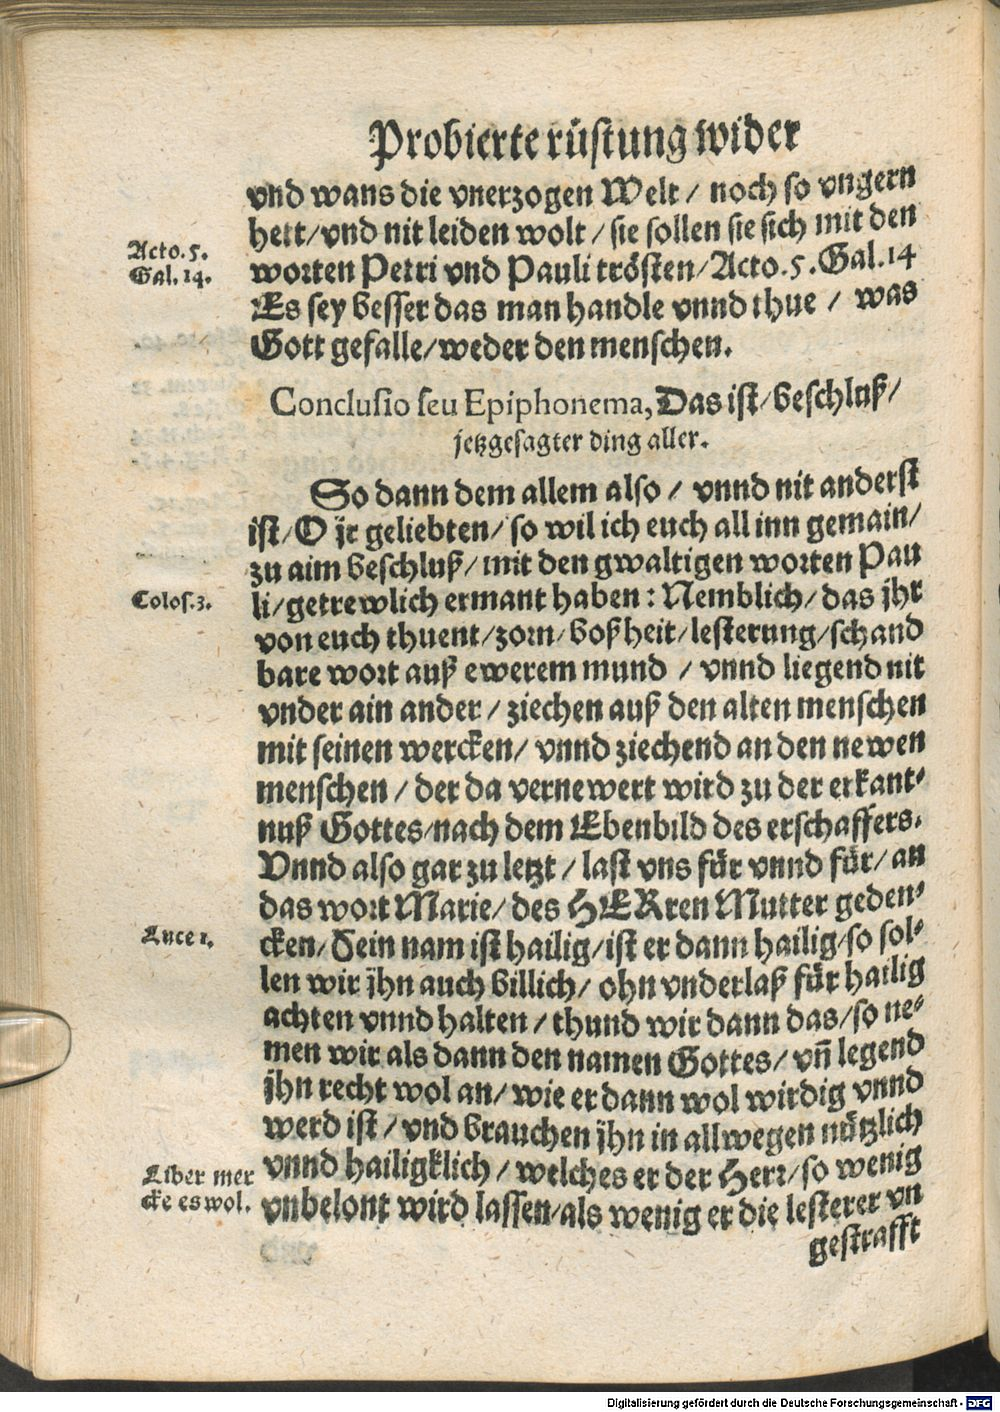 Probierte rüstung wider
vnd wans die vnerzogen Welt / noch so vngern
hett/vnd nit leiden wolt / sie sollen sie sich mit den
Acto. 5.
Gal. 14.
worten Petri vnd Pauli trösten/Acto. 5. Gal. 14
Es sey besser das man handle vnnd thue / was
Gott gefalle/weder den menschen.
Conclusio seu Epiphonema, Das ist/beschluß/
jetzgesagter ding aller.
So dann dem allem also / vnnd nit anderst
ist/O jr geliebten/so wil ich euch all inn gemain/
zu aim beschluß/mit den gwaltigen worten Pau
Colos. 3.
li/getrewlich ermant haben: Nemblich/das jhr
von euch thuent/zorn/boßheit/lesterung/schand
bare wort auß ewerem mund / vnnd liegend nit
vnder ain ander / ziechen auß den alten menschen
mit seinen wercken/ vnnd ziechend an den newen
menschen / der da vernewert wird zu der erkant-
nuß Gottes/nach dem Ebenbild des erschaffers.
Vnnd also gar zu letzt / last vns für vnnd für/an
das wort Marie/des HERren Mutter geden-
Luce 1.
cken/Sein nam ist hailig/ist er dann hailig/so sol-
len wir jhn auch billich/ ohn vnderlaß für hailig
achten vnnd halten / thund wir dann das/so ne-
men wir als dann den namen Gottes/ vñ legend
jhn recht wol an/ wie er dann wol wirdig vnnd
werd ist / vnd brauchen jhn in allwegen nützlich
Aber mer
cke es wol.
vnnd hailigklich / welches er der Herr/so wenig
vnbelont wird lassen/als wenig er die lesterer vn
gestrafft
Digitalisierung gefördert durch die Deutsche Forschungsgemeinschaft - DFG